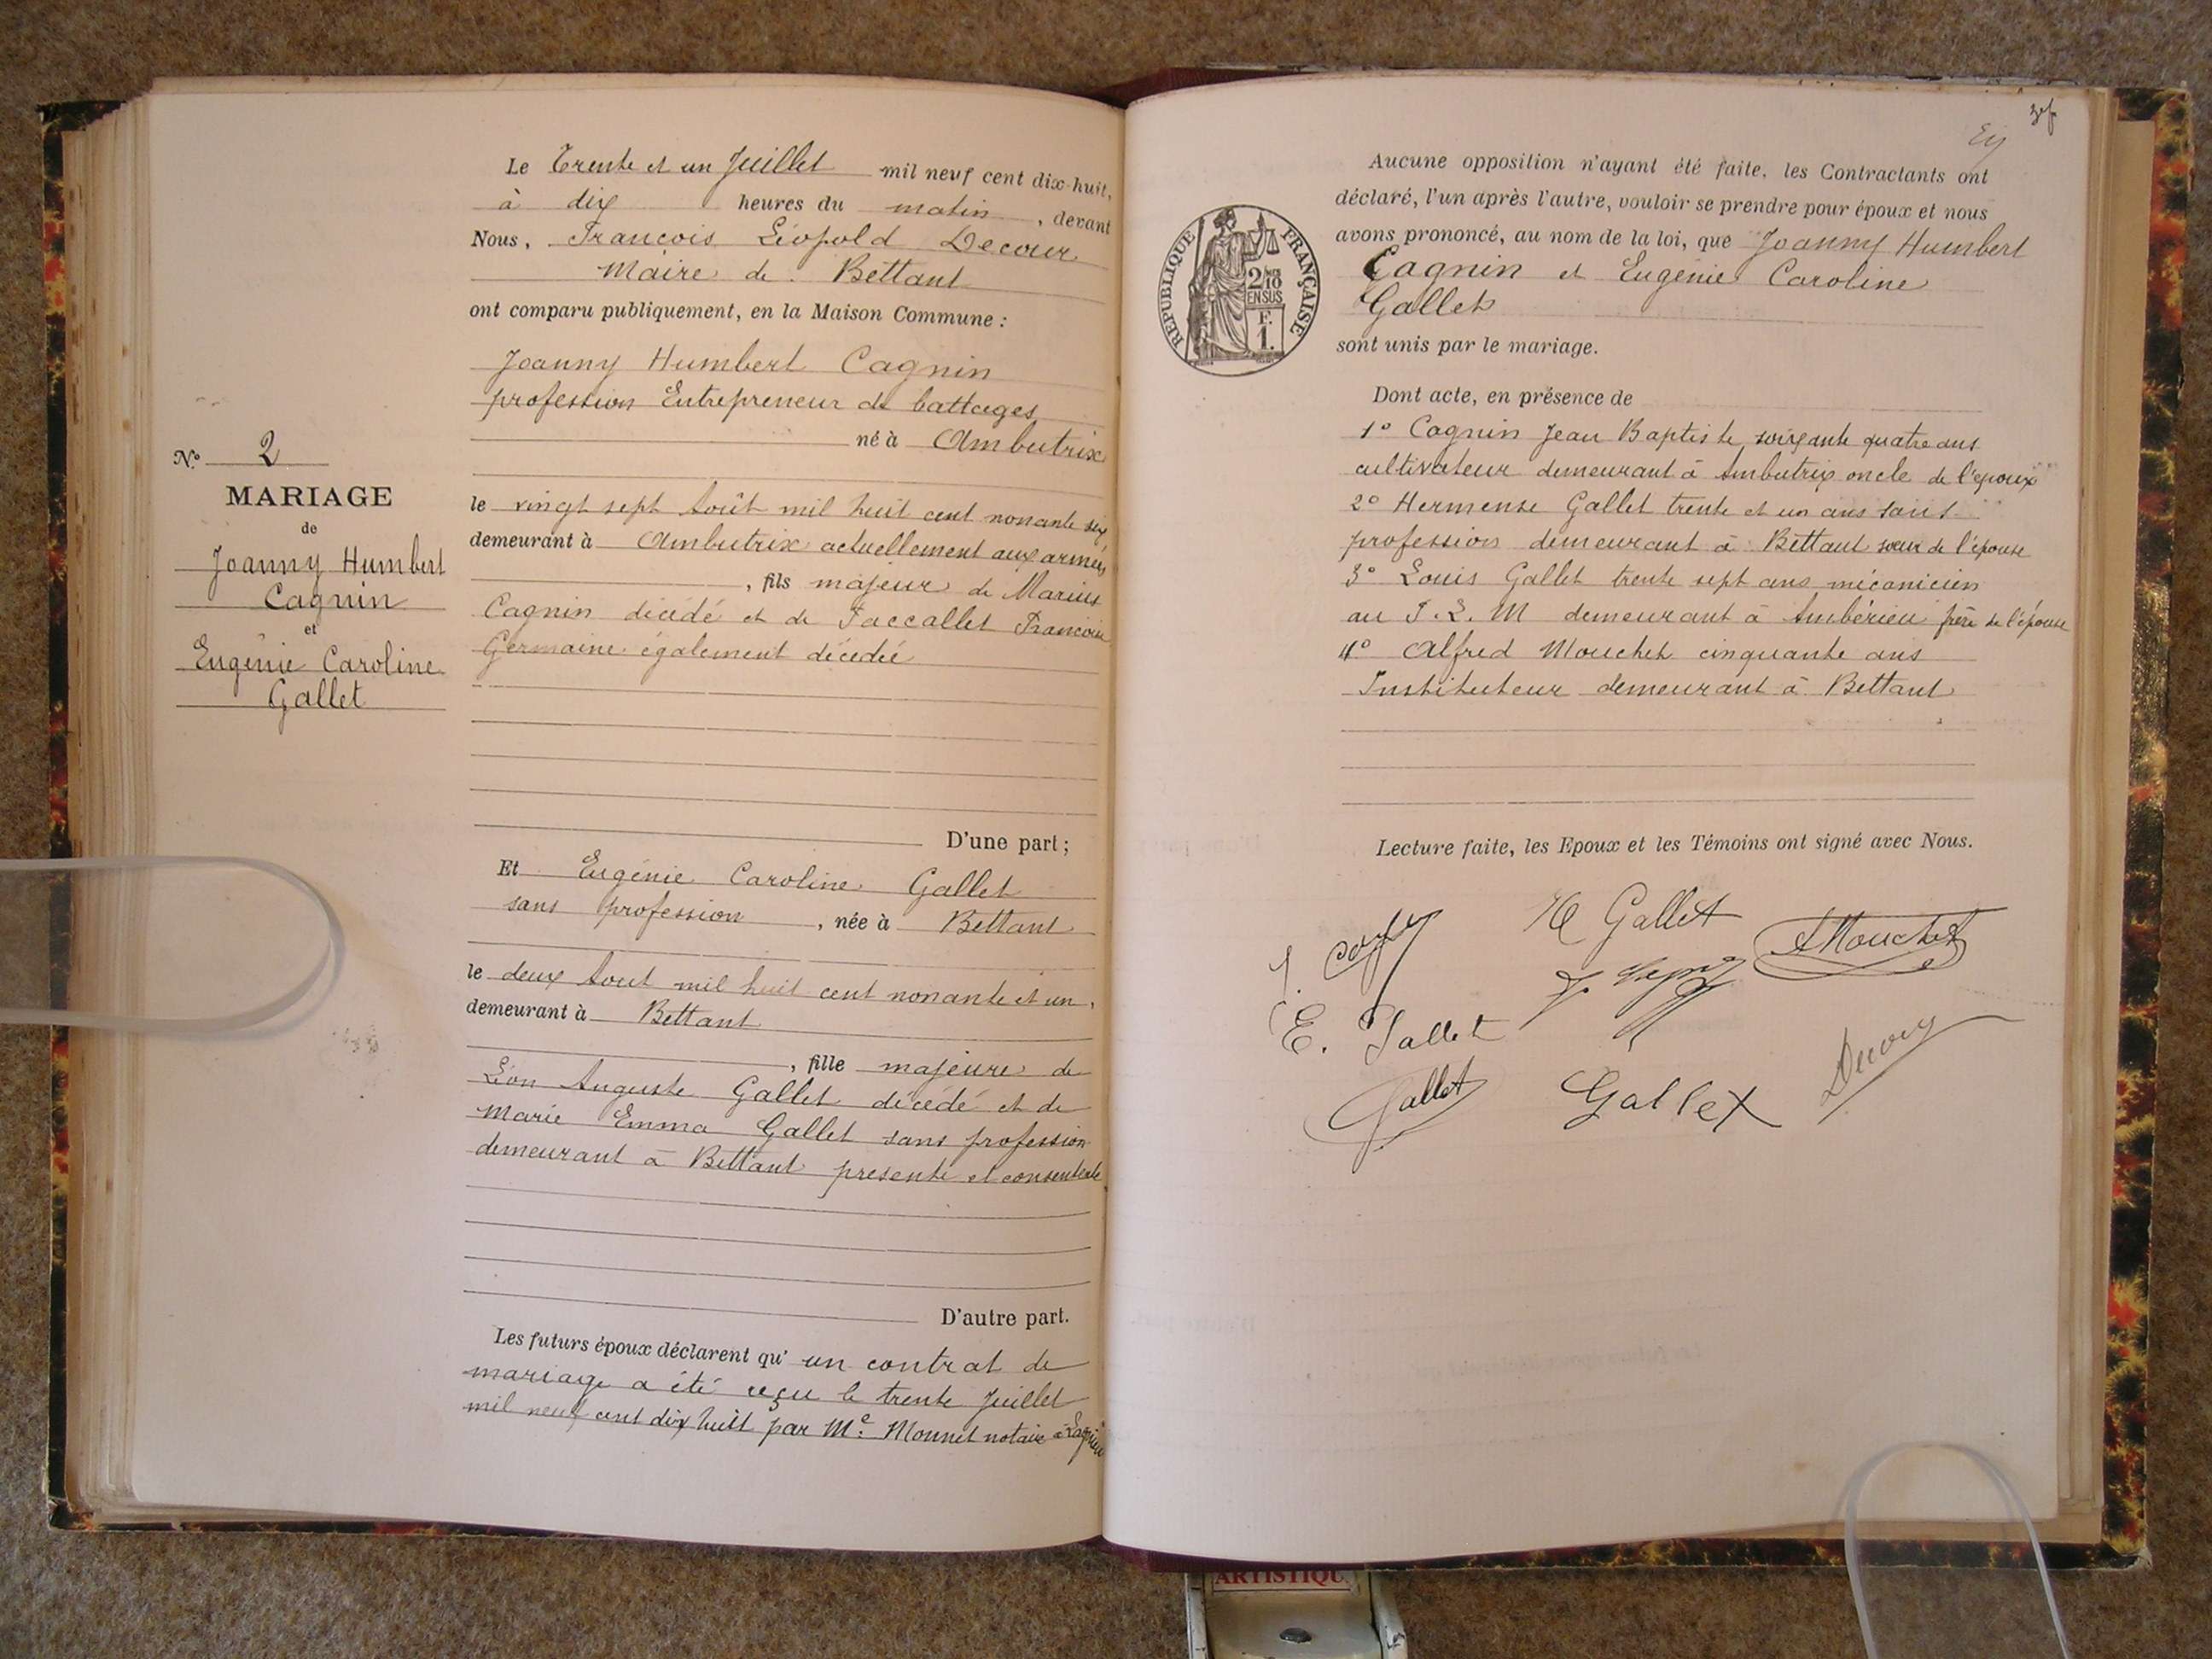 Le Trente et un Juillet mil neuf cent dix-huit,
à dix heures du matin, devant
Nous, Francois Léopold Decour
Maire de Bettant
ont comparu publiquement, en la Maison Commune :
Joanny Humbert Cagnin
profession Entrepreneur de battages
né à Ambutrix
le vingt sept Août mil huit cent nonante six
demeurant à Ambutrix actuellement aux armées
, fils majeur de Marius
Cagnin décédé et de Françoise
Germaine également décédée
D'une part ;
Et Eugénie Caroline Gallet
sans profession, née à Bettant
le deux Aout mil huit cent nonante et un,
demeurant à Bettant
, fille majeure de
Léon Auguste Gallet décédé et de
Marie Emma Gallet sans profession
demeurant à Bettant presente et consentante
D'autre part.
Les futurs époux déclarent qu' un contrat de
mariage a été reçu le trente Juillet
mil neuf cent dix huit par Me. Monnet notaire à Lagnieu
N.o 2
MARIAGE
de
Joanny Humbert
Cagnin
et
Eugénie Caroline
Gallet
Aucune opposition n'ayant été faite, les Contractants ont
déclaré, l'un après l'autre, vouloir se prendre pour époux et nous
avons prononcé, au nom de la loi, que Joanny Humbert
Cagnin et Eugénie Caroline
Gallet
sont unis par le mariage.
Dont acte, en présence de
1° Cagnin Jean Baptiste, soixante quatre ans
cultivateur demeurant à Ambutrix oncle de l'epoux
2° Hermense Gallet trente et un ans sans
profession demeurant à Bettant sœur de l'épouse
3° Louis Gallet trente sept ans mécanicien
au P. L. M demeurant à Ambérieu frère de l'épouse
4° Alfred Mouchet cinquante ans
Instituteur demeurant à Bettant
Lecture faite, les Epoux et les Témoins ont signé avec Nous.
H Gallet
AMouchet
E. Gallet
Gallet
Gallet
Decour
RÉPUBLIQUE FRANÇAISE
2/10
EN SUS
F.
1.
ARTISTIQU